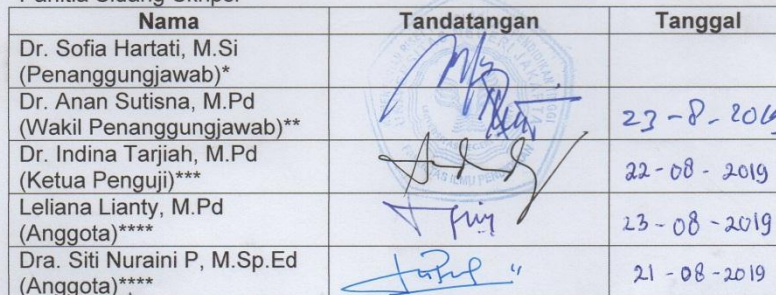 Panitia Sidang Skripsi
Nama Tandatangan Tanggal
Dr. Sofia Hartati, M.Si
(Penanggungjawab)*
Dr. Anan Sutisna, M.Pd
(Wakil Penanggungjawab)** 23-8-2019
Dr. Indina Tarjiah, M.Pd
(Ketua Penguji)*** 22-08-2019
Leliana Lianty, M.Pd
(Anggota)**** 23-08-2019
Dra. Siti Nuraini P, M.Sp.Ed
(Anggota)**** 21-08-2019